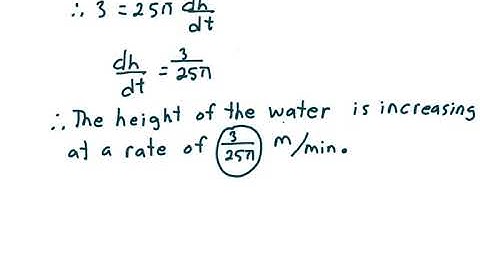 ∴ 3 = 25π dh/dt
dh/dt = 3/25π
∴ The height of the water is increasing
at a rate of 3/25π m/min.